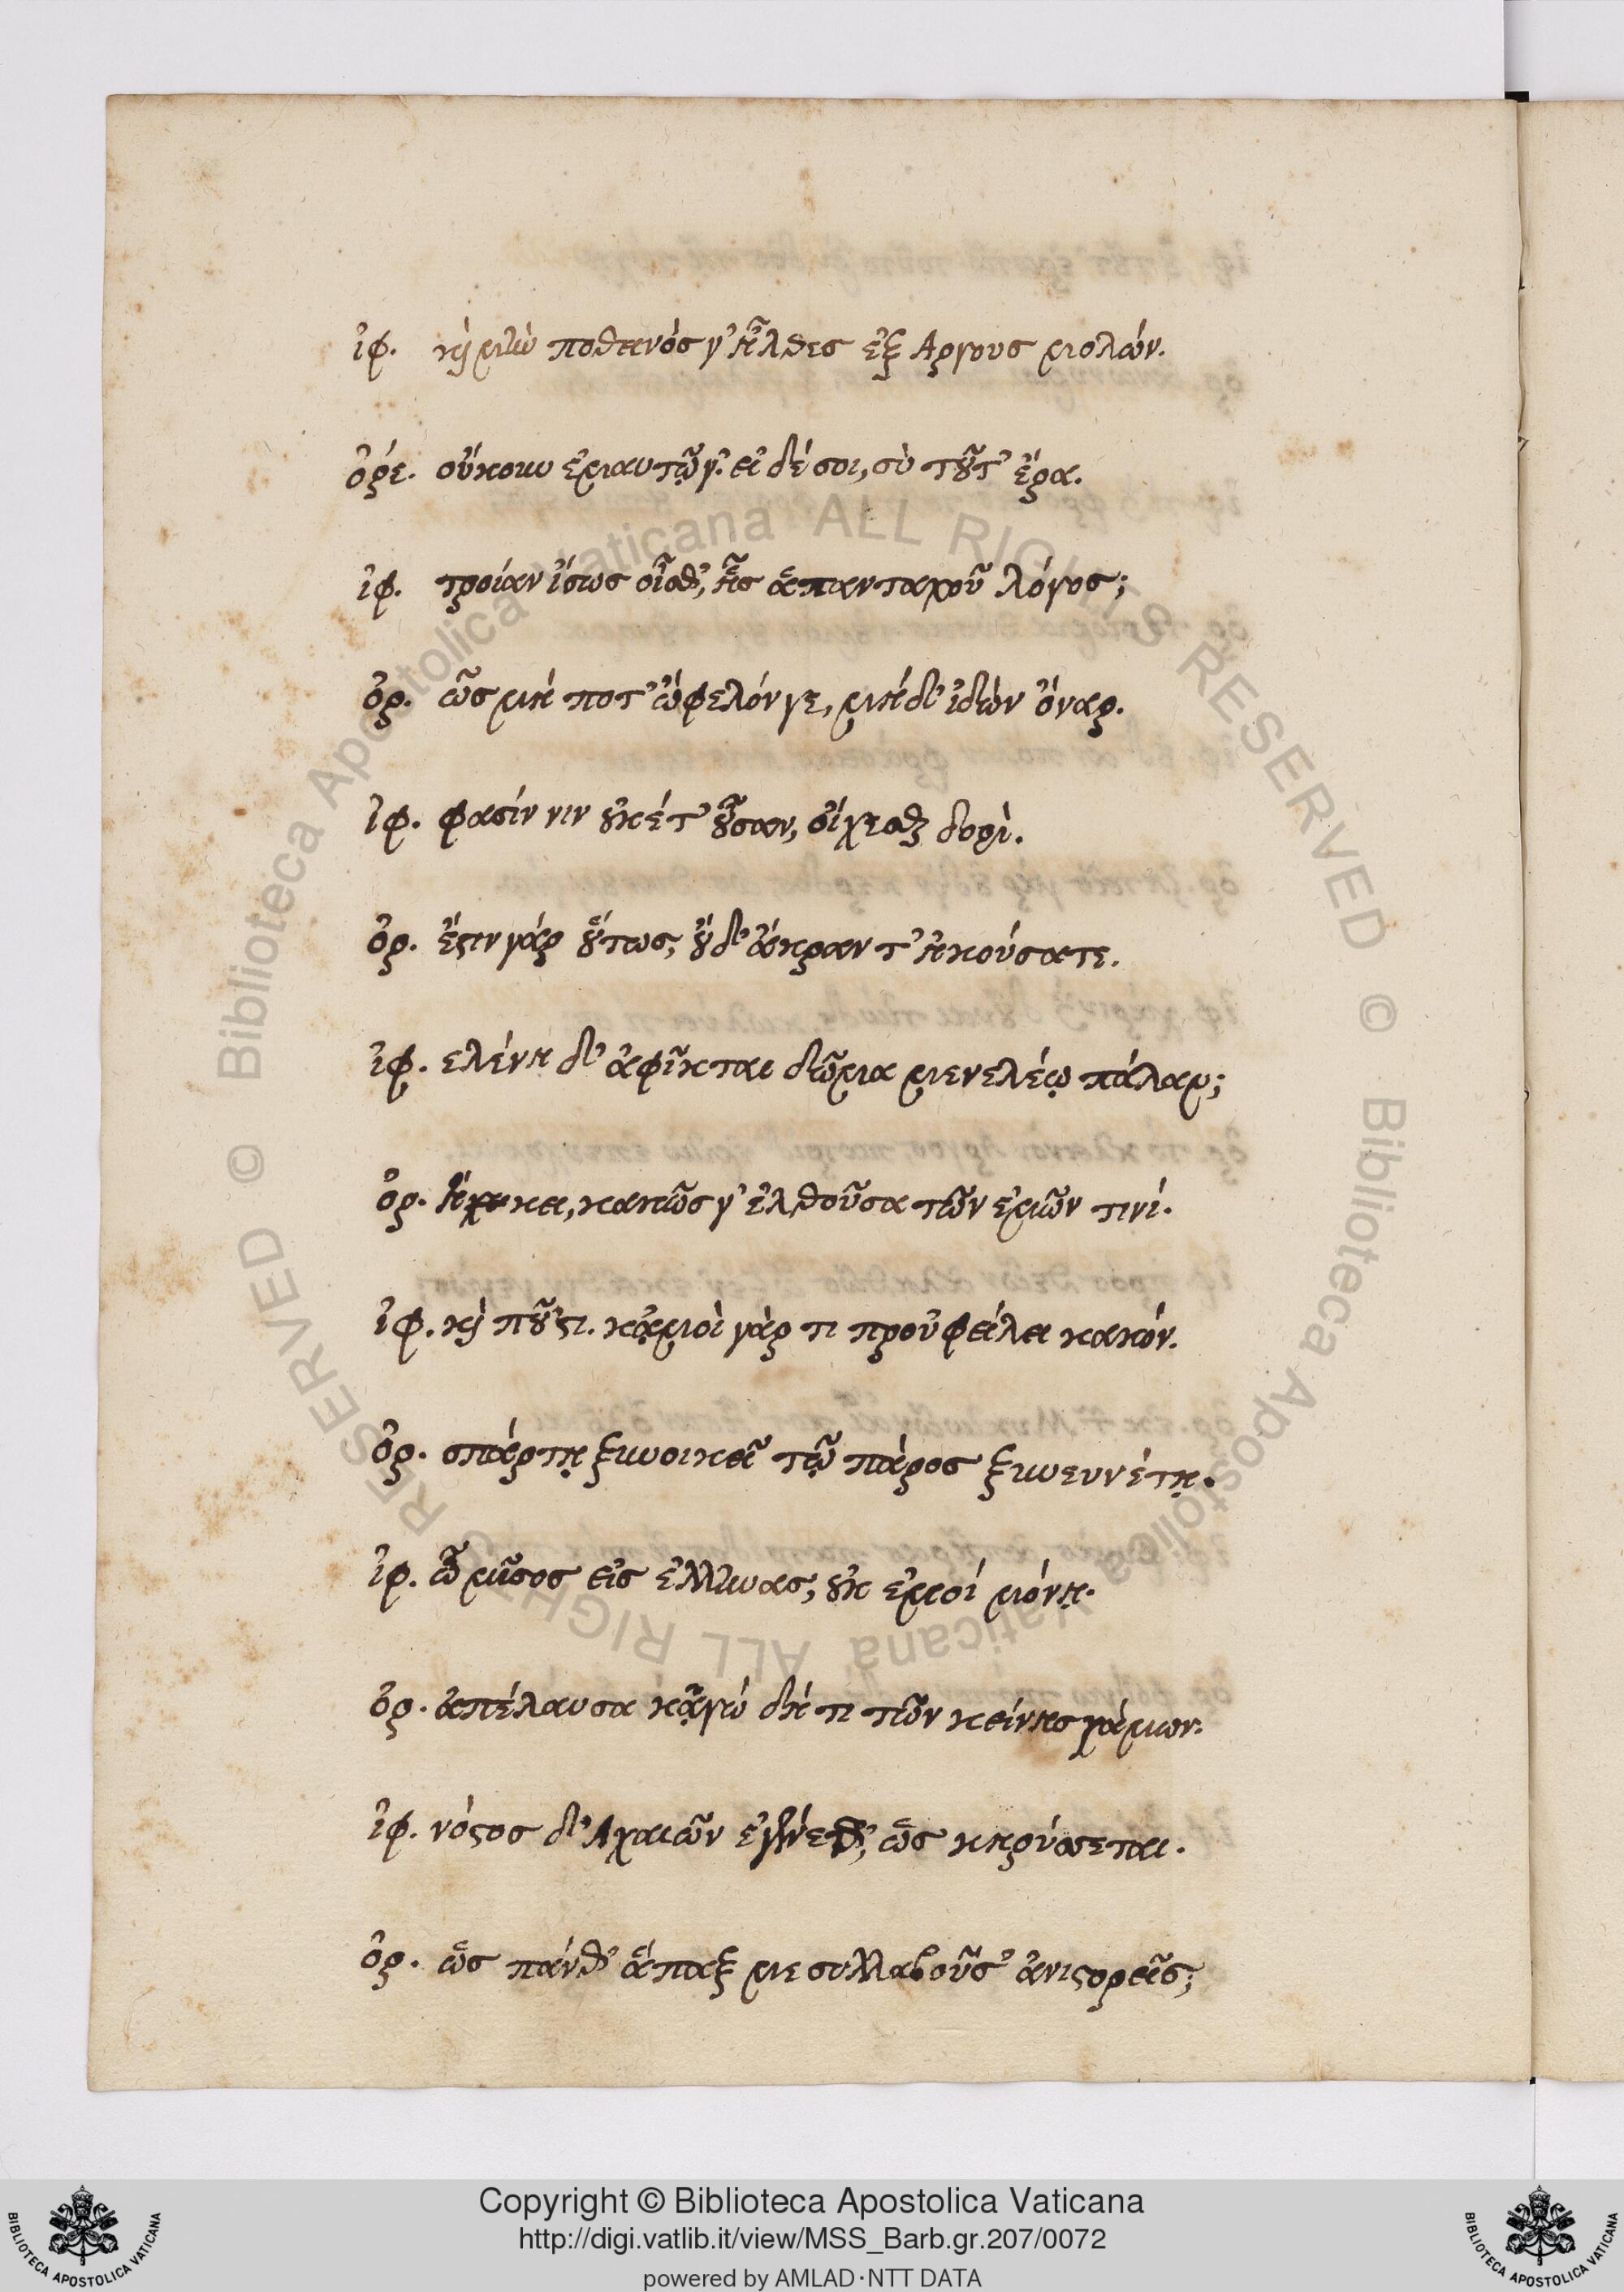 ἰφ. κὴ μὴν ποθεινός γ' ἦλθες ἐξ Αργους μολών.
ὀρέ. οὔκουν ἐμαυτῷ γ'. εἰ δέ σοι, σὺ τοῦτ' ἔρα.
ἰφ. τροίαν ἴσως οἶσθ', ἧς ἅπανταχοῦ λόγος;
ὀρ. ὡς μή ποτ' ὤφελόν γε, μήδ' ἰδὼν ὄναρ.
ἰφ. φασίν νιν οὐκέτ' οὖσαν, οἴχεσθ δορὶ.
ὀρ. ἔστιν γάρ οὕτως, οὔδ' ἄκραντ' ἠκούσατε.
ἰφ. ελένη δ' ἀφῖκται δῶμα μενελέῳ πάλαι;
ὀρ. ἥκει, κακῶς γ' ἐλθοῦσα τῶν ἐμῶν τινί.
ἰφ. κὴ ποῦ'στι. κᾀμοὶ γάρ τι προὐφείλει κακόν.
ὀρ. σπάρτῃ ξυνοικεῖ τῷ πάρος ξυνευνέτῃ.
ἰφ. ὦ μῖσος εἰς ἑλλήνας, οὐκ ἐμοί μόνῃ.
ὀρ. ἀπέλαυσα κᾀγώ δή τι τῶν κείνης γάμων.
ἰφ. νόστος δ' Αχαιῶν ἐγένεθ', ὡς κηρύσσεται.
ὀρ. ὡς πάνθ' ἅπαξ με συλλαβοῦσ' ἀνιστορεῖς;
Copyright © Biblioteca Apostolica Vaticana
http://digi.vatlib.it/view/MSS_Barb.gr.207/0072
powered by AMLAD·NTT DATA
BIBLIOTECA APOSTOLICA VATICANA
BIBLIOTECA APOSTOLICA VATICANA
© Biblioteca Apostolica Vaticana ALL RIGHTS RESERVED
© Biblioteca Apostolica Vaticana ALL RIGHTS RESERVED